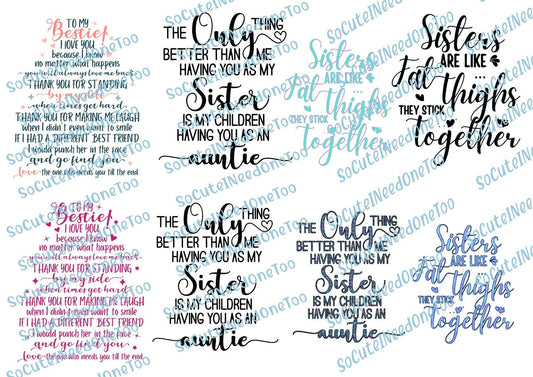 TO MY
Bestie
I LOVE YOU
because I know
no matter what happens
you will always love me back
THANK YOU FOR STANDING
by my side
when times get hard
THANK YOU FOR MAKING ME LAUGH
when I didn't even want to smile
IF I HAD A DIFFERENT BEST FRIEND
I would punch her in the face
and go find you
Love the one who needs you till the end.
THE Only THING
BETTER THAN ME
HAVING YOU AS MY
Sister
IS MY CHILDREN
HAVING YOU AS AN
auntie
Sisters
ARE LIKE
Fat ...
Thighs
THEY STICK
together
Sisters
ARE LIKE
Fat ...
Thighs
THEY STICK
together
TO MY
Bestie
I LOVE YOU
because I know
no matter what happens
you will always love me back
THANK YOU FOR STANDING
by my side
when times get hard
THANK YOU FOR MAKING ME LAUGH
when I didn't even want to smile
IF I HAD A DIFFERENT BEST FRIEND
I would punch her in the face
and go find you
Love the one who needs you till the end.
THE Only THING
BETTER THAN ME
HAVING YOU AS MY
Sister
IS MY CHILDREN
HAVING YOU AS AN
auntie
THE Only THING
BETTER THAN ME
HAVING YOU AS MY
Sister
IS MY CHILDREN
HAVING YOU AS AN
auntie
Sisters
ARE LIKE
Fat ...
Thighs
THEY STICK
together
SoCuteINeedOneToo